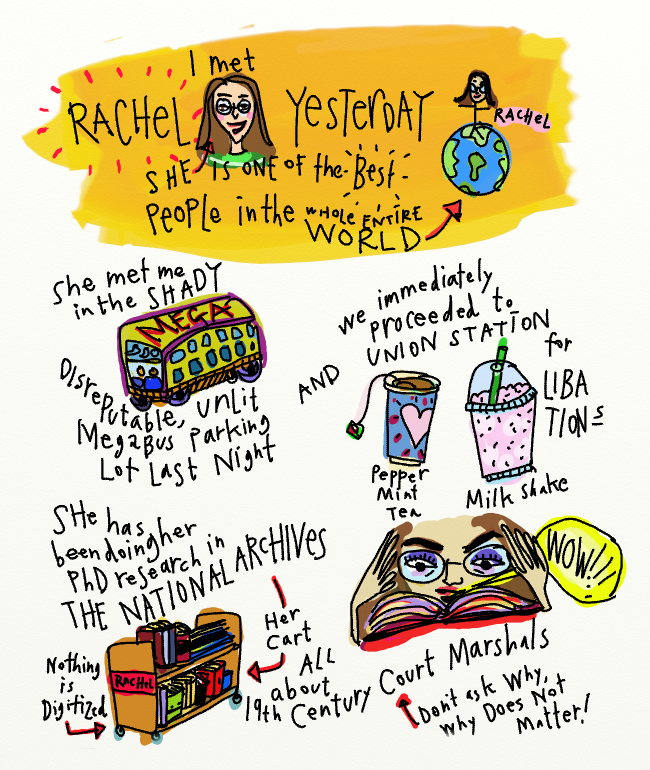 I met
RACHEL YESTERDAY
RACHEL
SHE IS ONE OF the Best
People in the WHOLE ENTIRE
WORLD
She met me
in the SHADY
MEGA
DISREPUTABLE, UNLIT
MegaBus Parking
Lot Last Night
AND
we immediately
proceeded to
UNION STATION
for
LIBA
TIONS
Pepper
Mint
Tea
Milk Shake
SHe has
been doing her
PhD research in
THE NATIONAL ARCHIVES
Nothing
is
Digitized
RACHEL
Her
Cart
ALL
about
19th Century Court Marshals
WOW!!!
Don't ask Why,
Why Does Not
Matter!